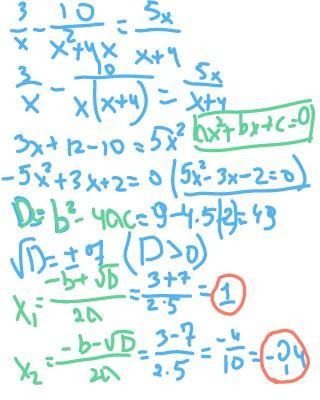 3/x - 10/(x²+4x) = 5x/(x+4)
3/x - 10/(x(x+4)) = 5x/(x+4)
3x+12-10=5x²
ax²+bx+c=0
-5x²+3x+2=0 (5x²-3x-2=0)
D=b²-4ac=9-4·5(-2)=49
√D=±7 (D>0)
x₁=(-b+√D)/2a=(3+7)/(2·5)=1
x₂=(-b-√D)/2a=(3-7)/(2·5)=-4/10=-0,4